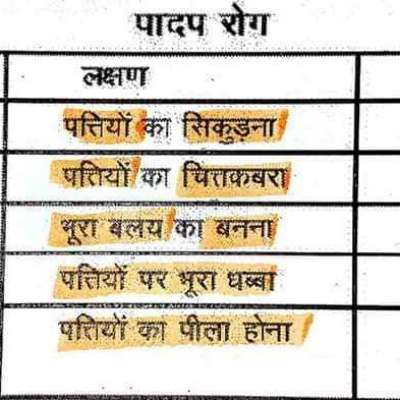 पादप रोग
लक्षण
पत्तियों का सिकुड़ना
पत्तियों का चित्तकबरा
भूरा बलय का बनना
पत्तियों पर भूरा धब्बा
पत्तियों का पीला होना